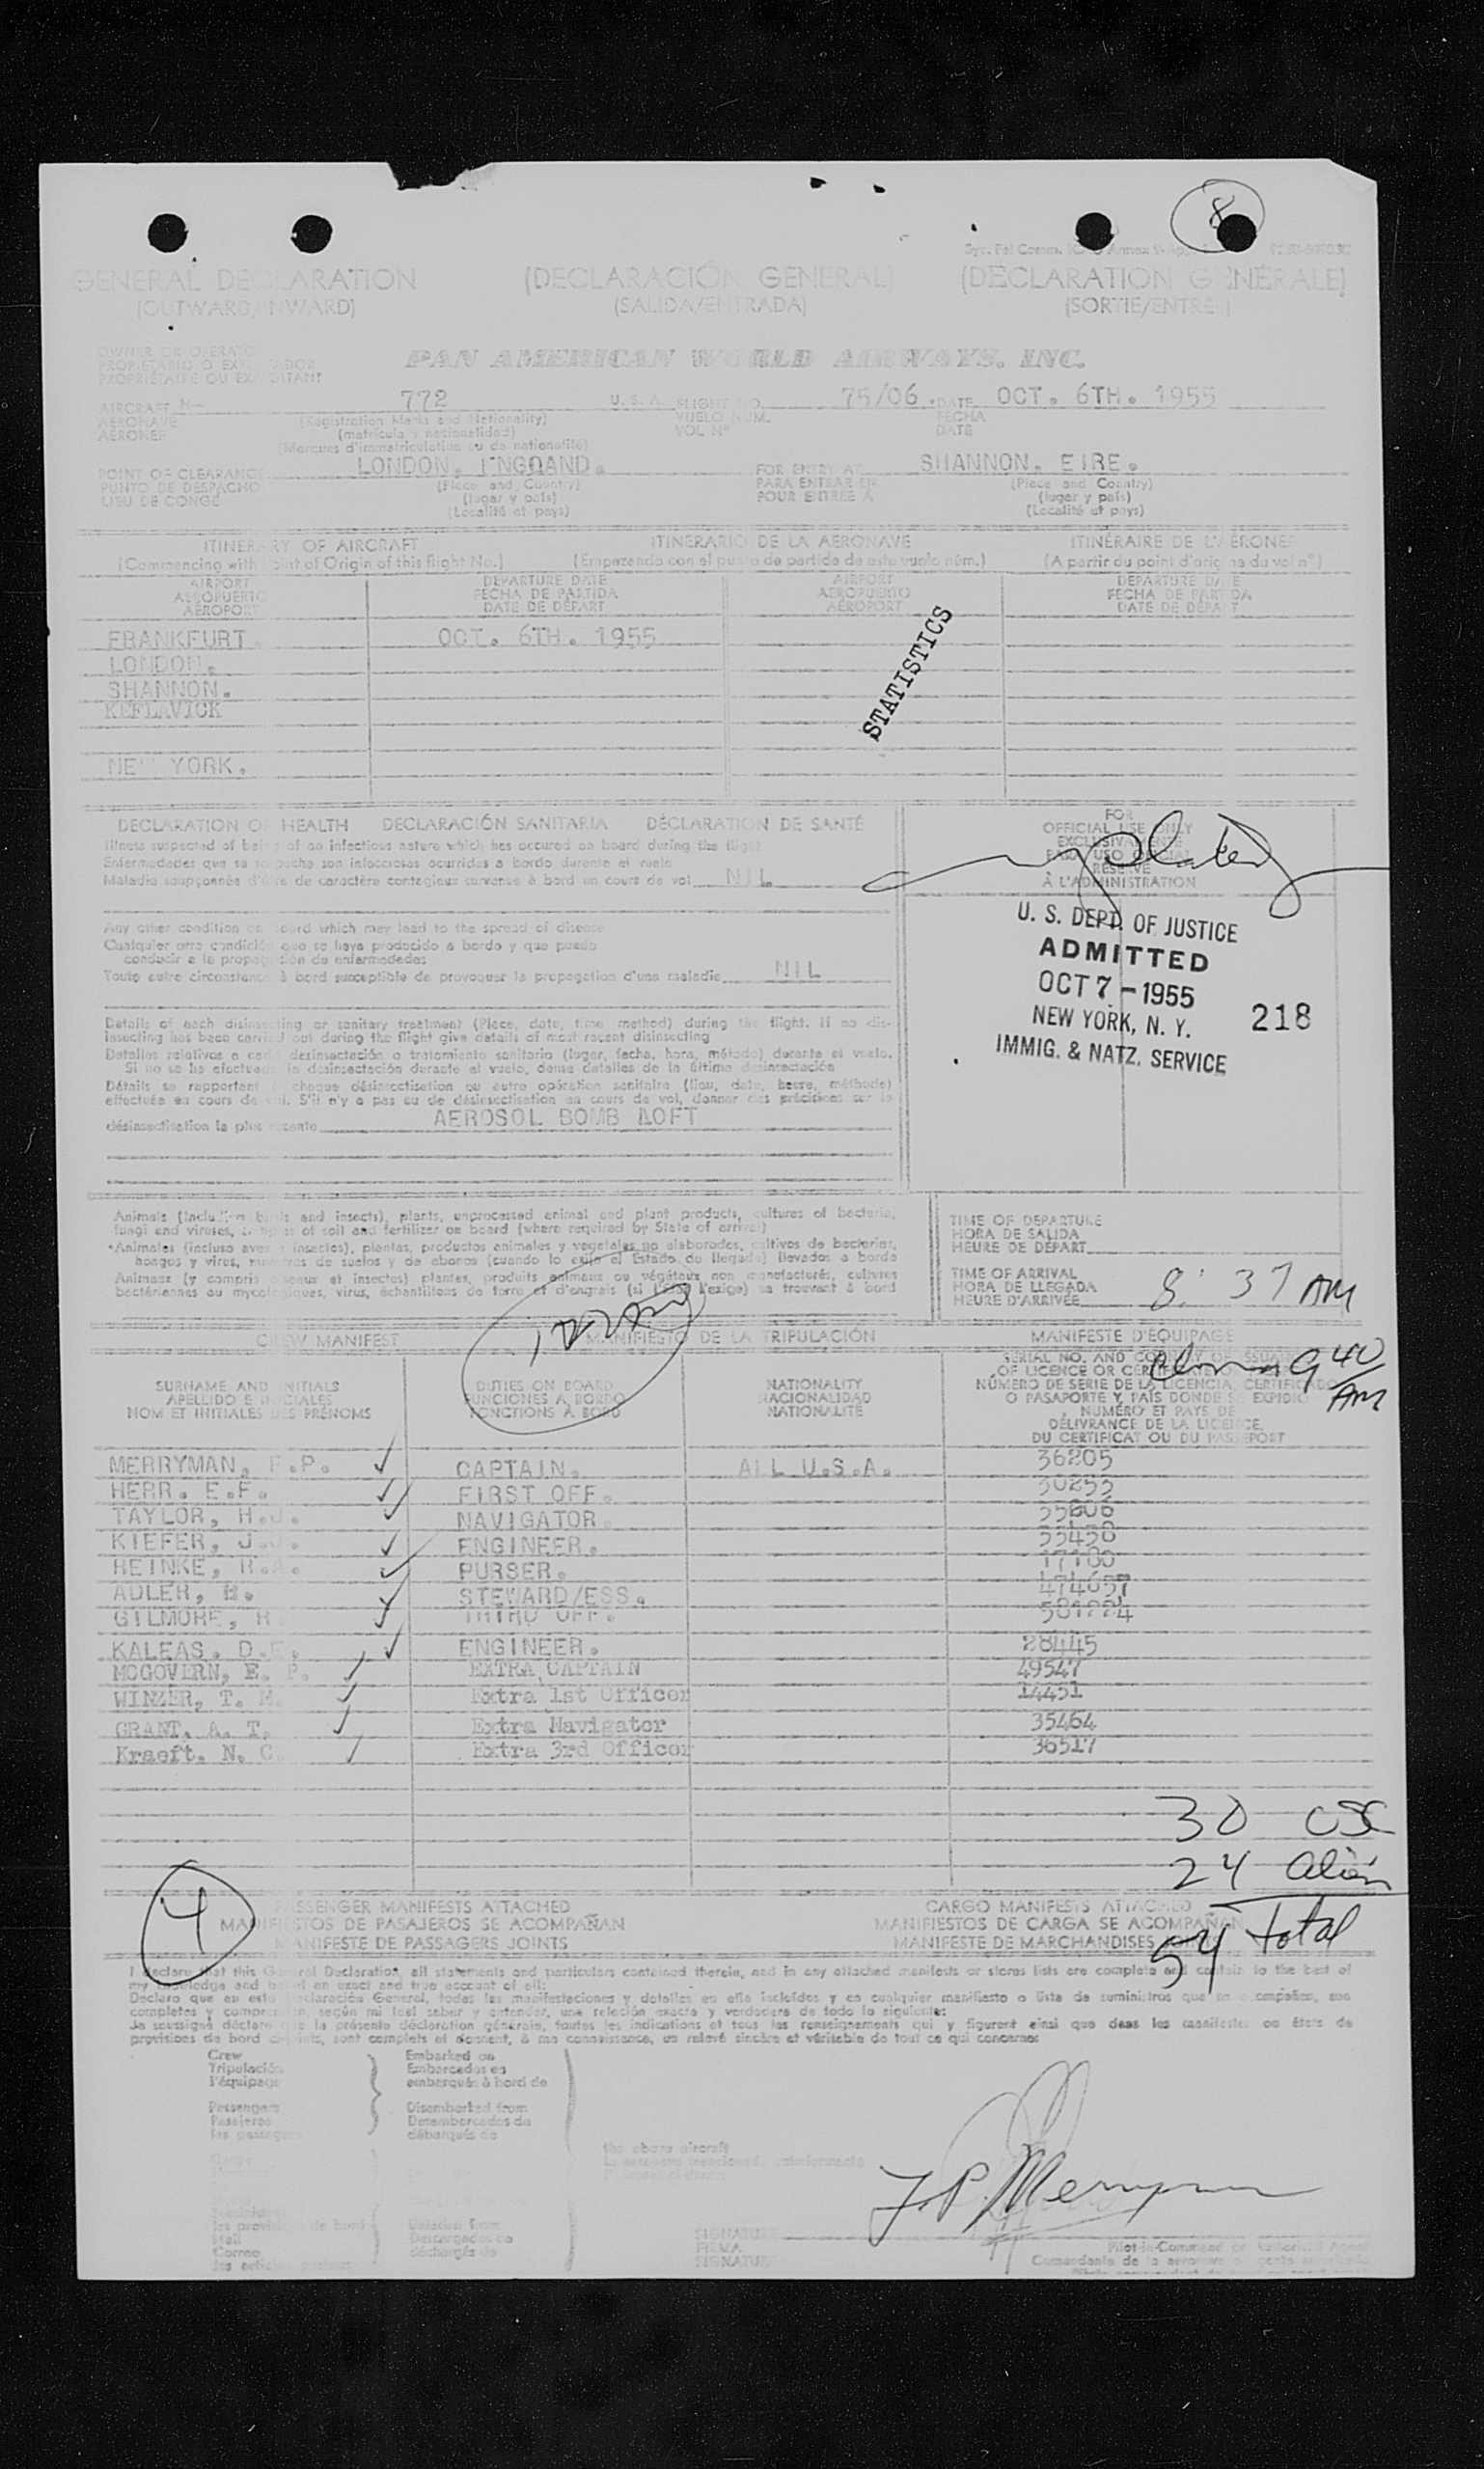 8
GENERAL DECLARATION (DECLARACIÓN GENERAL) (DECLARATION GÉNÉRALE)
(OUTWARD/INWARD) (SALIDA/ENTRADA) (SORTIE/ENTRÉE)
PAN AMERICAN WORLD AIRWAYS, INC.
AIRCRAFT N- 772 U.S.A. FLIGHT NO. 75/06. DATE OCT. 6TH. 1955
AERONAVE (Registration Marks and Nationality) VUELO NUM. FECHA
AÉRONEF (matrícula y nacionalidad) VOL Nº DATE
POINT OF CLEARANCE LONDON. ENGDAND. FOR ENTRY AT SHANNON. EIRE.
PUNTO DE DESPACHO (Place and Country) PARA ENTRAR EN (Place and Country)
LIEU DE CONGÉ (lugar y país) POUR ENTRÉE À (lugar y país)
(Localité et pays) (Localité et pays)
ITINERARY OF AIRCRAFT ITINERARIO DE LA AERONAVE ITINÉRAIRE DE L'AÉRONEF
(Commencing with Point of Origin of this flight No.) (Empezando con el punto de partida de este vuelo núm.) (A partir du point d'origine du vol nº)
AIRPORT DEPARTURE DATE AIRPORT DEPARTURE DATE
AEROPUERTO FECHA DE PARTIDA AEROPUERTO FECHA DE PARTIDA
AÉROPORT DATE DE DÉPART AÉROPORT DATE DE DÉPART
FRANKFURT OCT. 6TH. 1955
LONDON.
SHANNON.
KEFLAVICK
NEW YORK.
STATISTICS
DECLARATION OF HEALTH DECLARACIÓN SANITARIA DÉCLARATION DE SANTÉ
Illness suspected of being of an infectious nature which has occured on board during the flight
Enfermedades que se sospecha son infecciosas ocurridas a bordo durante el vuelo
Maladie soupçonnée d'être de caractère contagieux survenue à bord en cours de vol NIL
FOR
OFFICIAL USE ONLY
EXCLUSIVAMENTE
PARA USO OFICIAL
RÉSERVÉ
À L'ADMINISTRATION
Any other condition on board which may lead to the spread of disease
Cualquier otra condición que se haya producido a bordo y que pueda
conducir a la propagación de enfermedades
Toute autre circonstance à bord susceptible de provoquer la propagation d'une maladie NIL
U. S. DEPT. OF JUSTICE
ADMITTED
OCT 7 - 1955
NEW YORK, N. Y.
IMMIG. & NATZ. SERVICE
218
Details of each disinsecting or sanitary treatment (Place, date, time method) during the flight. If no dis-
insecting has been carried out during the flight give details of most recent disinsecting
Detalles relativos a cada desinsectación o tratamiento sanitario (lugar, fecha, hora, método) durante el vuelo.
Si no se ha efectuado la desinsectación durante el vuelo, dense detalles de la última desinsectación
Détails se rapportant à chaque désinsectisation ou autre opération sanitaire (lieu, date, heure, méthode)
effectuée en cours de vol. S'il n'y a pas eu de désinsectisation en cours de vol, donner des précisions sur la
désinsectisation la plus récente AEROSOL BOMB AOFT
Animals (including birds and insects), plants, unprocessed animal and plant products, cultures of bacteria,
fungi and viruses, samples of soil and fertilizer on board (where required by State of arrival)
Animales (incluso aves e insectos), plantas, productos animales y vegetales no elaborados, cultivos de bacterias,
hongos y virus, muestras de suelos y de abonos (cuando lo exija el Estado de llegada) llevados a bordo
Animaux (y compris oiseaux et insectes) plantes, produits animaux ou végétaux non manufacturés, cultures
bactériennes ou mycologiques, virus, échantillons de terre et d'engrais (si l'État l'exige) se trouvant à bord
TIME OF DEPARTURE
HORA DE SALIDA
HEURE DE DÉPART
TIME OF ARRIVAL
HORA DE LLEGADA
HEURE D'ARRIVÉE 8:37 AM
CREW MANIFEST MANIFIESTO DE LA TRIPULACIÓN MANIFESTE D'ÉQUIPAGE
9 40 AM
SURNAME AND INITIALS DUTIES ON BOARD NATIONALITY
APELLIDO E INICIALES FUNCIONES A BORDO NACIONALIDAD
NOM ET INITIALES DES PRÉNOMS FONCTIONS À BORD NATIONALITÉ
NÚMERO DE SERIE DE LA LICENCIA, CERTIFICADO
O PASAPORTE Y PAÍS DONDE SE EXPIDIÓ
NUMÉRO ET PAYS DE
DÉLIVRANCE DE LA LICENCE,
DU CERTIFICAT OU DU PASSEPORT
MERRYMAN, F.P. CAPTAIN. ALL U.S.A. 36205
HERR. E.F. FIRST OFF. 30255
TAYLOR, H.J. NAVIGATOR. 55606
KIEFER, J.J. ENGINEER. 55450
HEINKE, R.A. PURSER. 17100
ADLER, H. STEWARD/ESS. 474657
GILMORE, R. THIRD OFF.
KALEAS. D. ENGINEER. 28445
MCGOVERN, E. P. EXTRA CAPTAIN 49547
WINZER, T. Extra 1st Officer 14451
GRANT. A. T. Extra Navigator 35464
Kraeft. N. C. Extra 3rd Officer 36517
30 USC
24 alien
54 Total
4
PASSENGER MANIFESTS ATTACHED CARGO MANIFESTS ATTACHED
MANIFIESTOS DE PASAJEROS SE ACOMPAÑAN MANIFIESTOS DE CARGA SE ACOMPAÑAN
MANIFESTE DE PASSAGERS JOINTS MANIFESTE DE MARCHANDISES
I declare that this General Declaration, all statements and particulars contained therein, and in any attached manifests or stores lists are complete and contain to the best of
my knowledge and belief an exact and true account of all:
Declaro que en esta Declaración General, todas las manifestaciones y detalles en ella incluidos y en cualquier manifiesto o lista de suministros que se acompañan, son
completos y comprenden, según mi leal saber y entender, una relación exacta y verdadera de todo lo siguiente:
Je soussigné déclare que la présente déclaration générale, toutes les indications et tous les renseignements qui y figurent ainsi que dans les manifestes ou états de
provisions de bord ci-joints, sont complets et donnent, à ma connaissance, un relevé sincère et véritable de tout ce qui concerne:
Crew Embarked on
Tripulación Embarcados en
l'équipage embarqués à bord de
Passengers Disembarked from
Pasajeros Desembarcados de
les passagers débarqués de
the above aircraft
F. P. Merryman
SIGNATURE
FIRMA
SIGNATURE
Pilot-in-Command